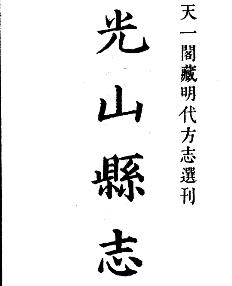 天一閣藏明代方志選刊
光山縣志